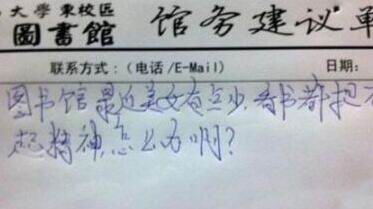 大學東校區
圖書館
馆务建议單
联系方式：(电话/E-Mail)
日期：
图书馆最近美女有点少，看书都提不
起精神，怎么办啊？